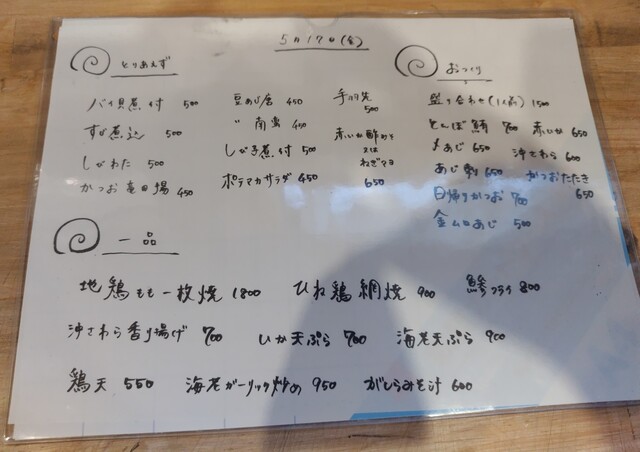 5月17日(金)
とりあえず
バイ貝煮付 500
すじ煮込 500
しがわた 500
かつお竜田揚 450
豆あじ唐 450
〃 南蛮 450
しが子煮付 500
ポテマカサラダ 450
手羽先
500
赤いか酢みそ
又は
ねぎマヨ
650
おつくり
盛り合わせ(1人前) 1500
とんぼ鮪 700 赤いか 650
〆あじ 650 沖さわら 600
あじ刺 650 かつおたたき
650
日帰りかつお 700
金ムロあじ 500
一品
地鶏もも一枚焼 1800 ひね鶏網焼 900 鯵フライ 800
沖さわら香り揚げ 700 いか天ぷら 700 海老天ぷら 900
鶏天 550 海老ガーリック炒め 950 がしらみそ汁 600